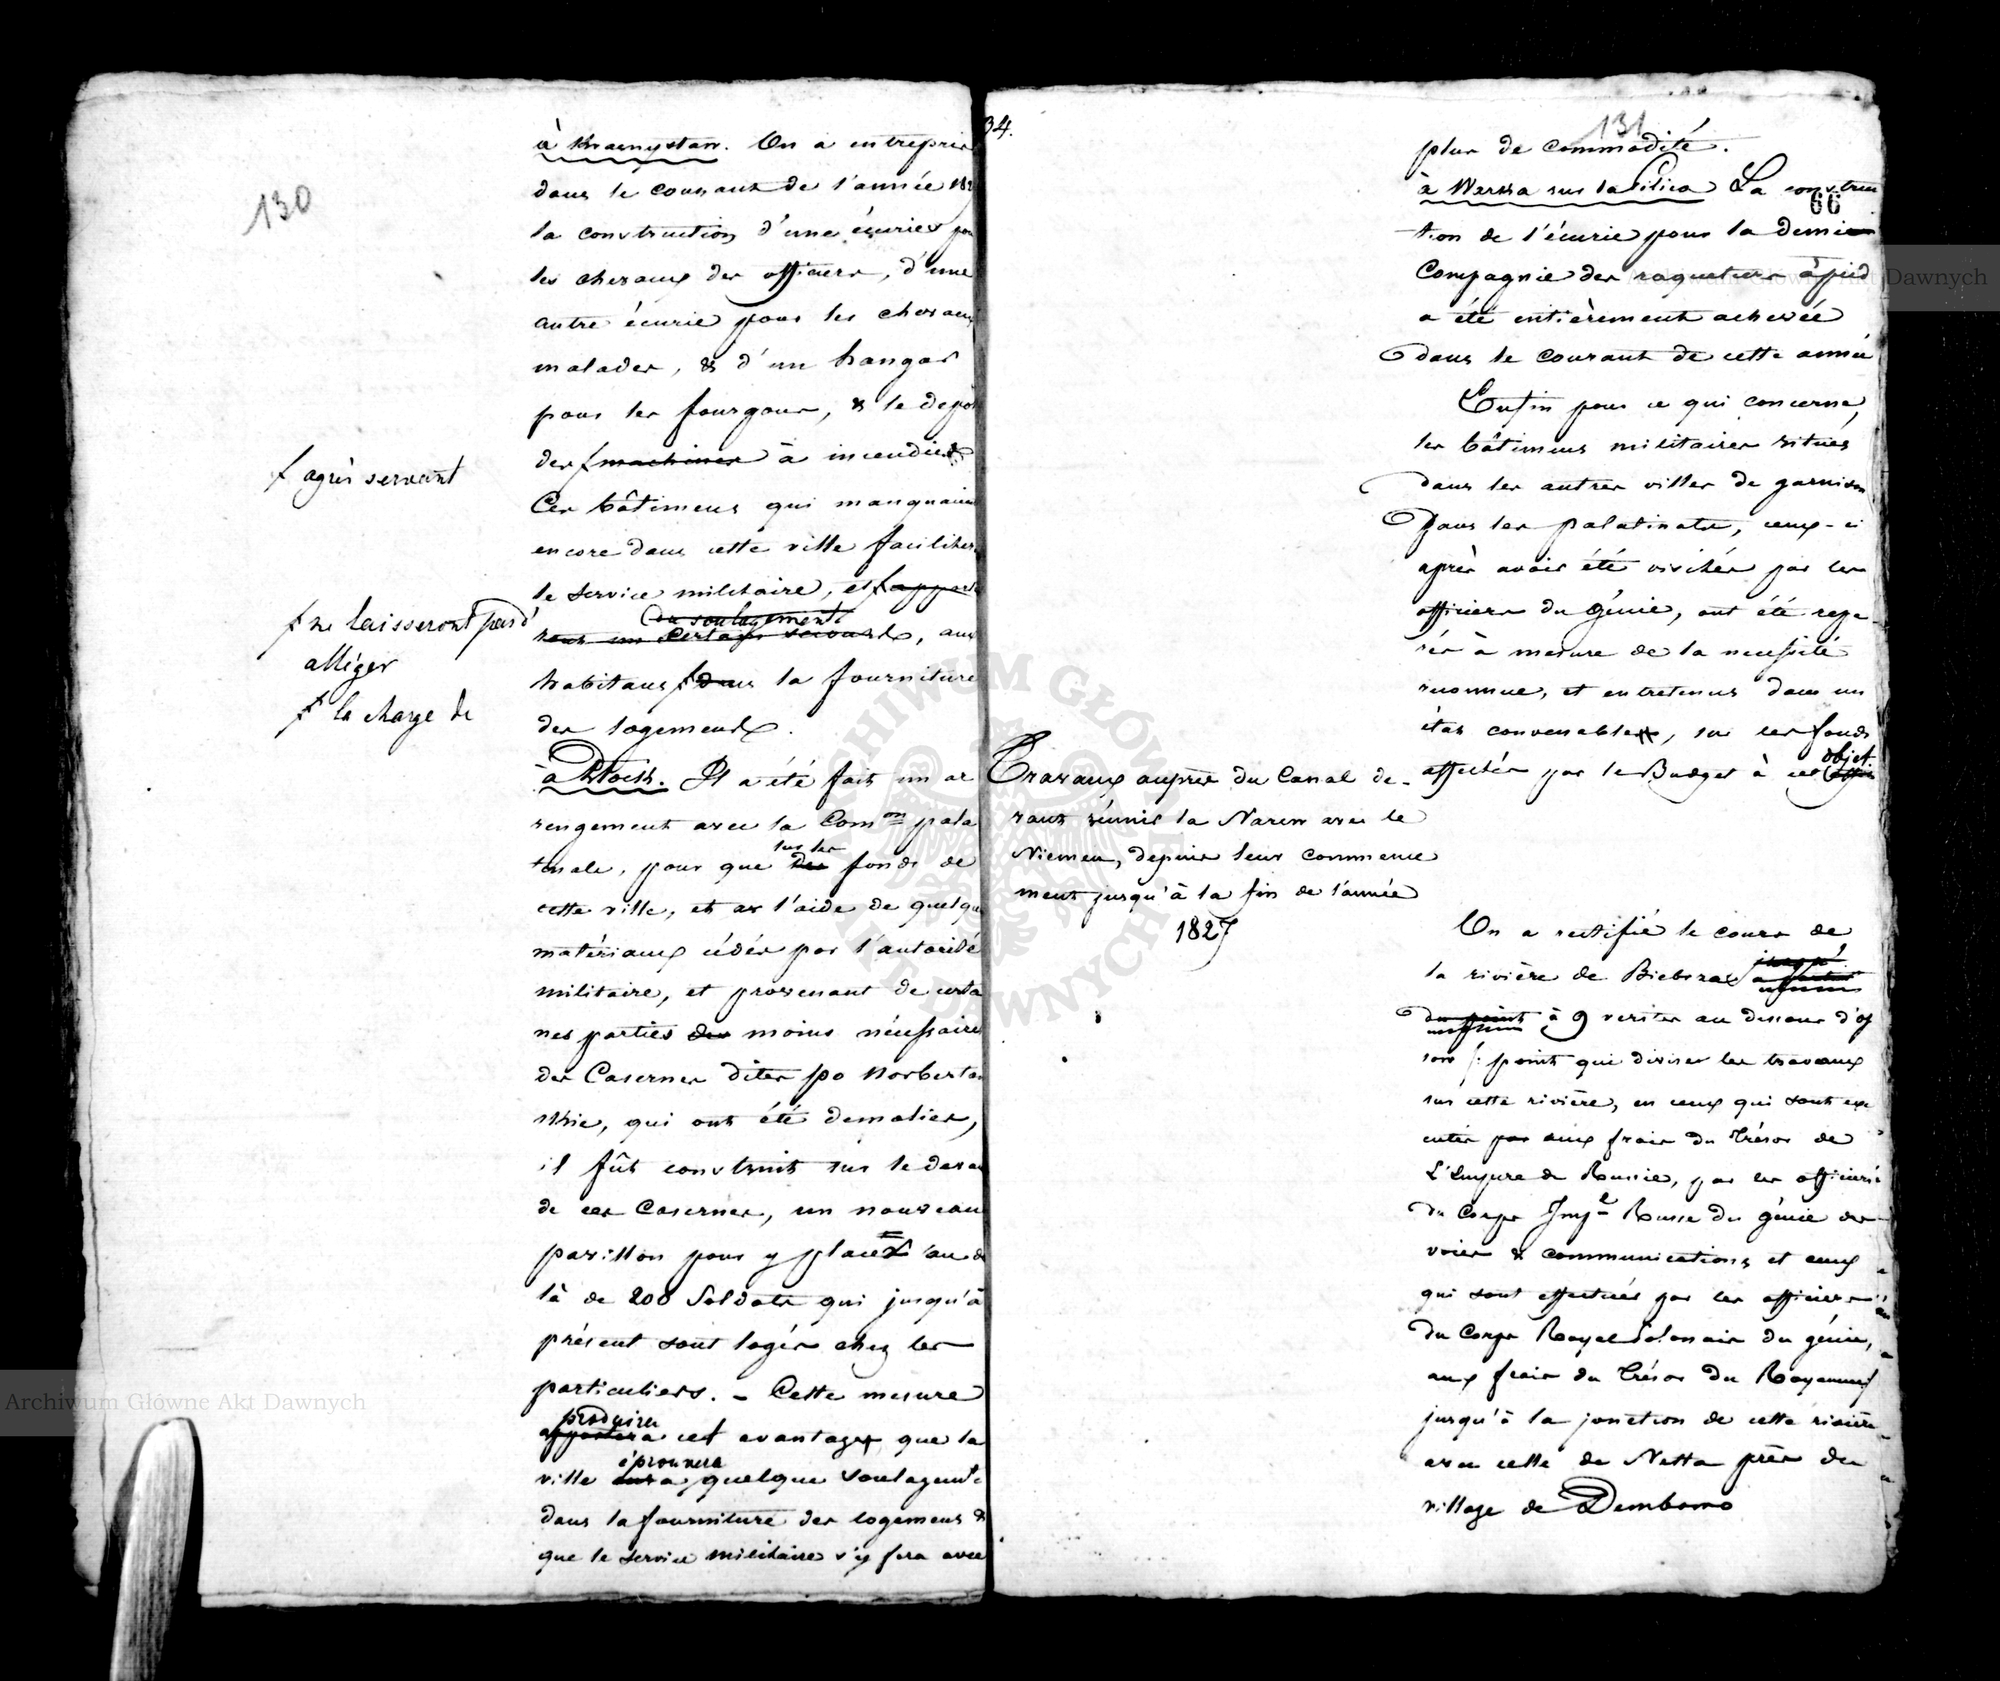 130
à Krasnystaw. On a entrepris
dans le courant de l'année 182
la construction d'une écurie pour
les chevaux des officiers, d'une
autre écurie pour les chevaux
malades, & d'un hangar
pour les fourgons, & le dépôt
des machines à incendie
agrès servant
Ces bâtimens qui manquaient
encore dans cette ville faciliter
le service militaire, et
ou soulagement
ront un certain secours, aux
ne laisseront pas d'
alléger
habitans dans la fourniture
la charge de
des logemens.
à Plock. Il a été fait un ar
rengement avec la Com.on pala
tinale, pour que des fonds de
sur les
cette ville, et av l'aide de quelqu
matériaux cédés par l'autorité
militaire, et provenant de certa
nes parties des moins nécessaires
des Casernes dites po Norbertan
skie, qui ont été demolies,
il fût construit sur le
de ces Casernes, un nouveau
pavillon pour y placer au de
là de 200 Soldats qui jusqu'à
présent sont logés chez les
particuliers. - Cette mesure
produira
apportera cet avantage que la
éprouvera
ville aura quelque soulagemt
dans la fourniture des logemens &
que le service militaire s'y fera avec
34.
131
66
plus de commodité.
à Warka sur la Pilica La construc
tion de l'écurie pour la demie
Compagnie des raqueteurs à pied
a été entièrement achevée
dans le courant de cette année
Enfin pour ce qui concerne,
les bâtimens militaires situés
dans les autres villes de garnison
dans les palatinats, ceux-ci
après avoir été visités par les
officiers du Génie, ont été repa-
rés à mesure de la necessité
reconnue, et entretenus dans un
état convenable, sur les fonds
objet.
affectés par le Budget à cet
Travaux auprès du Canal de-
vant réunir la Narew avec le
Niemen, depuis leur commence
ment jusqu'à la fin de l'année
1827
On a rectifié le cours de
la rivière de Biebrza
jusqu'
du point à 9 verstes au dessous d'Os
sow /: point qui divise les travaux
sur cette rivière, en ceux qui sont exe
cutés par aux frais du Trésor de
L'Empire de Russie, par les officiers
du Corps Imp.l Russe du génie des
voies & communications et ceux
qui sont effectués par les officiers
du Corps Royal Polonais du génie,
aux frais du Trésor du Royaume/
jusqu'à la jonction de cette rivière
avec celle de Netta près du
village de Dembowo
ARCHIWUM GŁÓWNE AKT DAWNYCH
Archiwum Główne Akt Dawnych
Archiwum Główne Akt Dawnych